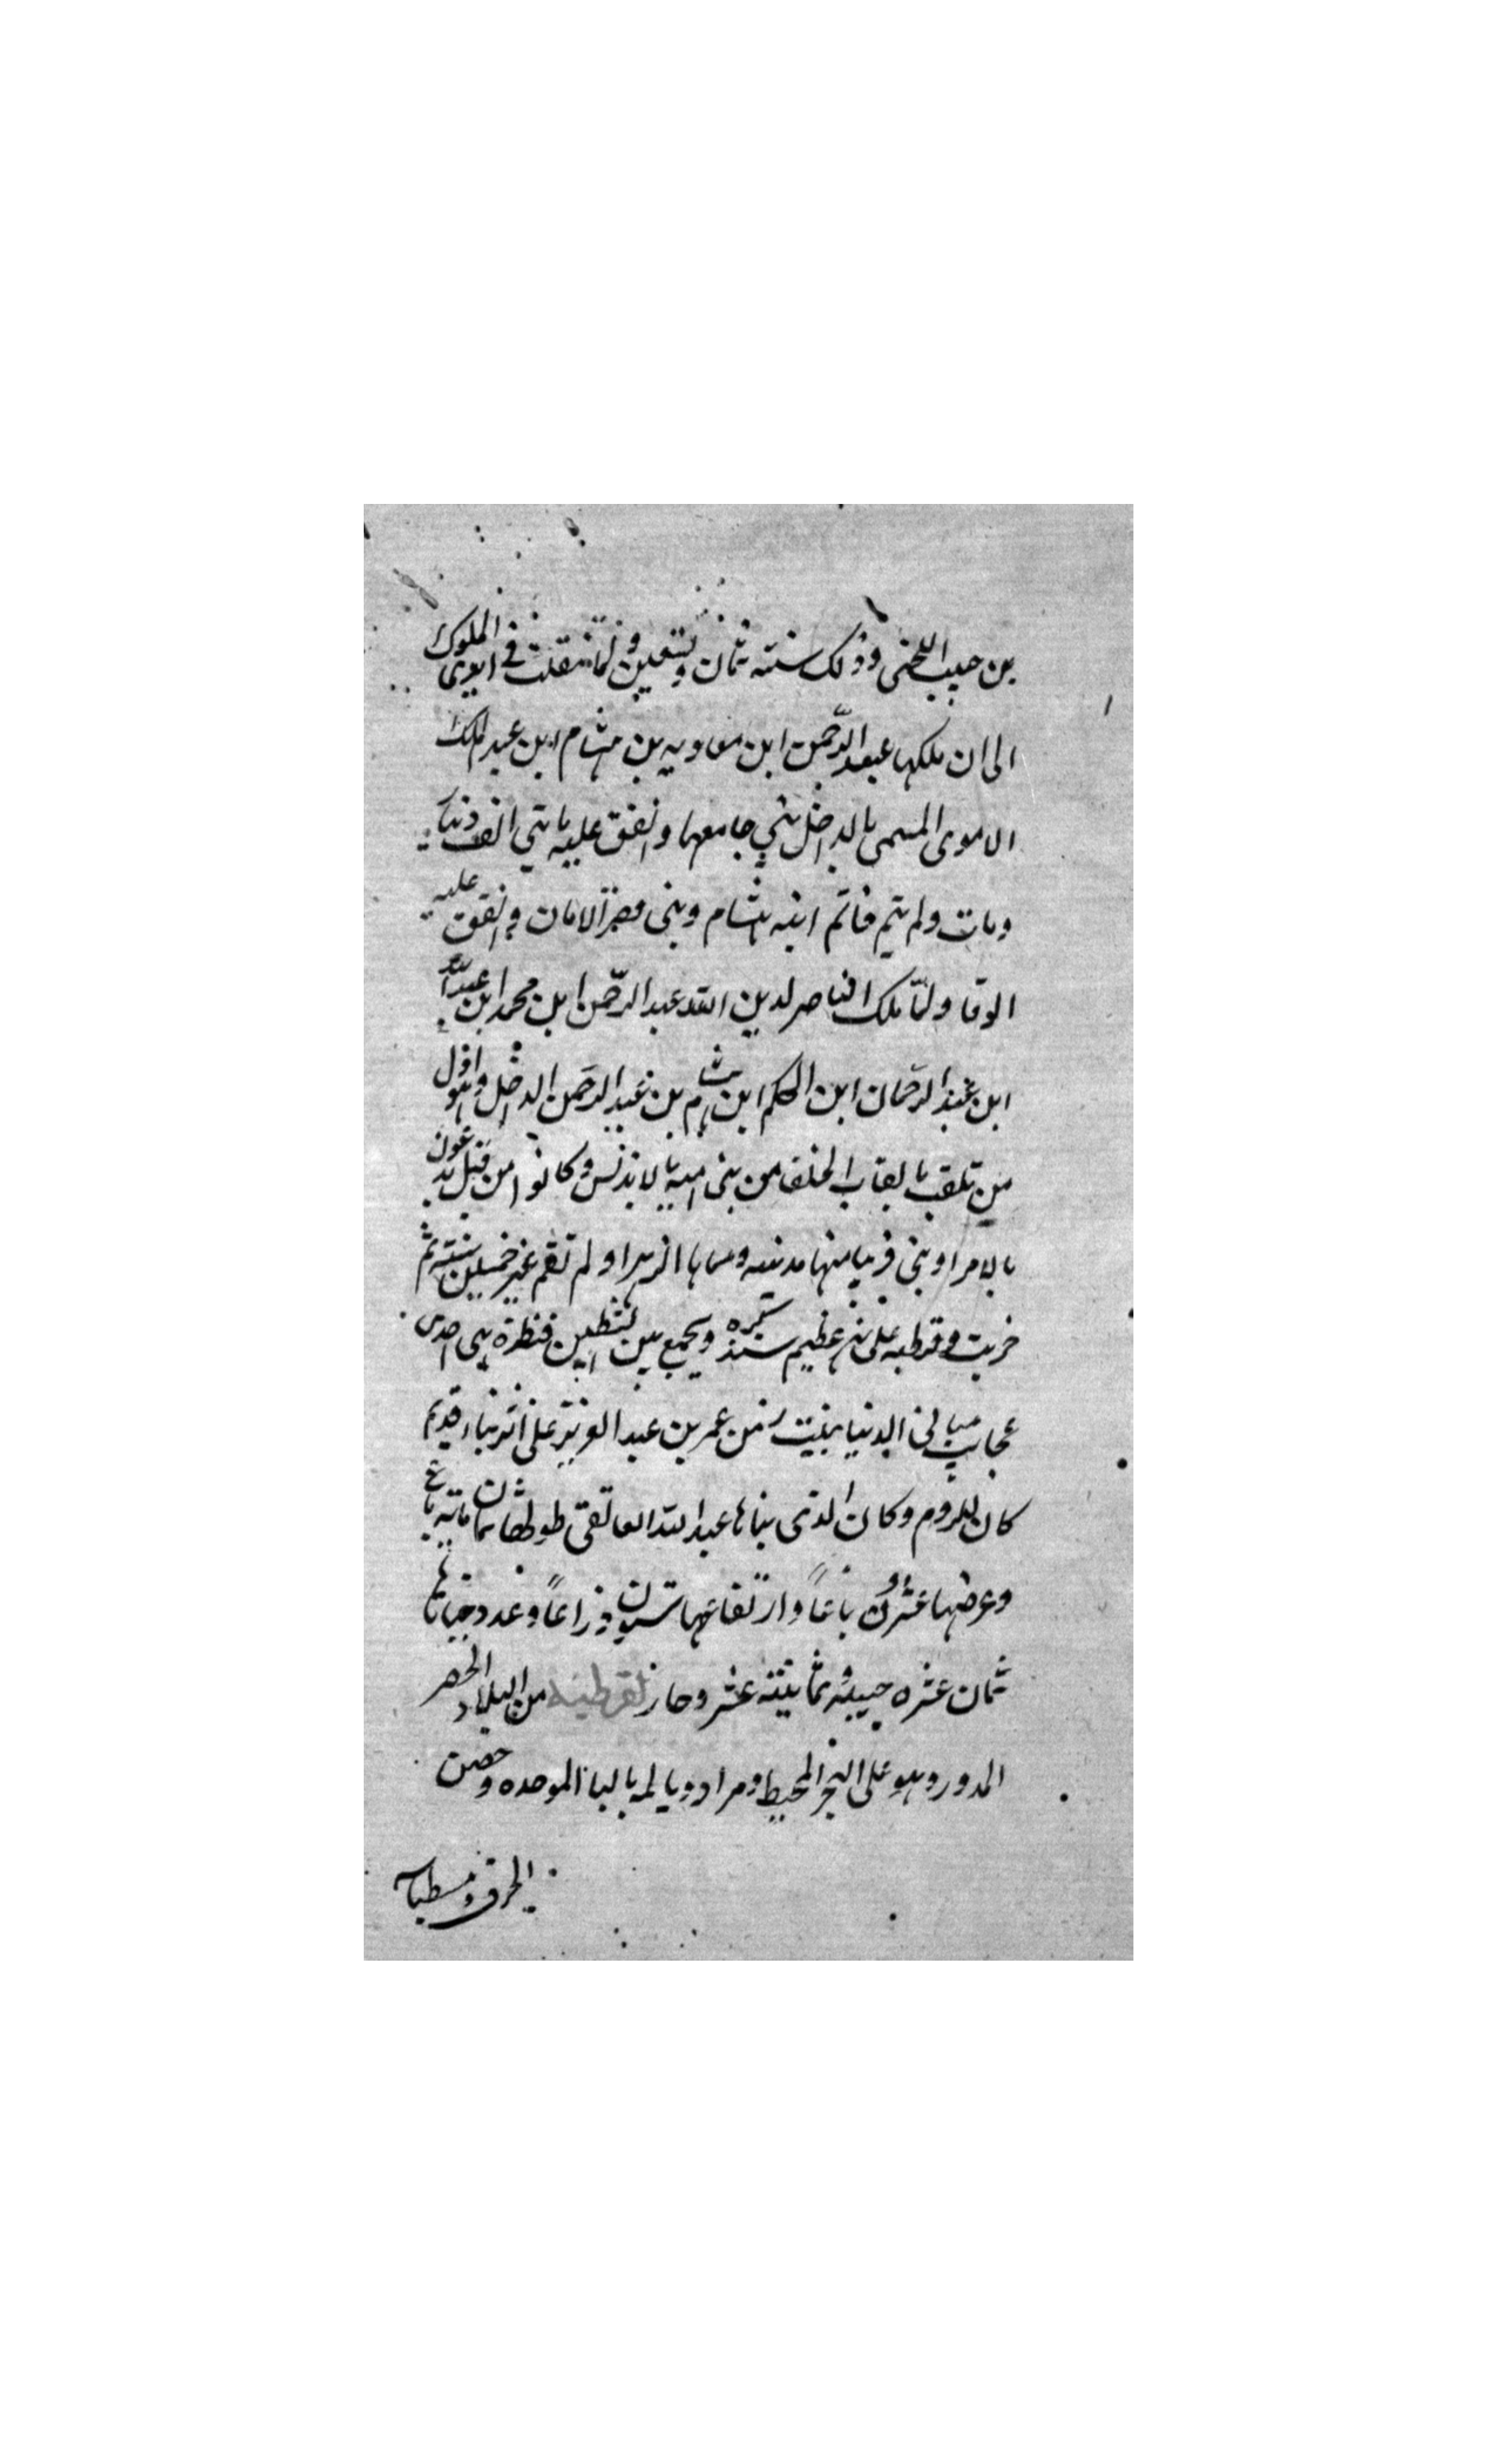 بن حبيب اللخمى وذلك سنته ثمان وتسعين ولما تنقلت في ايدى الملوك
الى ان ملكها عبد الرحمن ابن معاويه بن هشام ابن عبد الملك
الاموى المسمى بالداخل بنى جامعها وانفق عليه ماتى الف دينار
ومات ولم يتم فاتم ابنه هشام وبنى قصر الامان وانفق عليه
الوفا ولمّا ملك الناصر لدين الله عبد الرحمن ابن محمد ابن عبد الله
ابن عبد الرحمان ابن الحكم ابن هشام بن عبد الرحمن الداخل وهو اول
من تلقب بالقاب الخلفا من بنى اميه بالاندلس وكانوا من قبل يدعون
بالامرا وبنى فيما بينها مدينه وسماها الزهرا ولم تقم غير خمسين سنته ثم
خربت وقرطبه على نهر عظيم كبره ويجمع بين الشطين قنطرة هى احدى
عجايب مبانى الدنيا بنيت زمن عمر بن عبد العزيز على اثر بناء قديم
كان للروم وكان الذى بناها عبد الله الغافقى طولها ثمان ماته باع
وعرضها عشرون باعاً وارتفاعها ستون ذراعاً وعدد حناياها
ثمان عشره حنيه ثمانيته عشر وحاز لقرطبه من البلاد الحصر
المدور وهو على البحر المحيط ومراد ويالمه بالبا الموحده وحصن